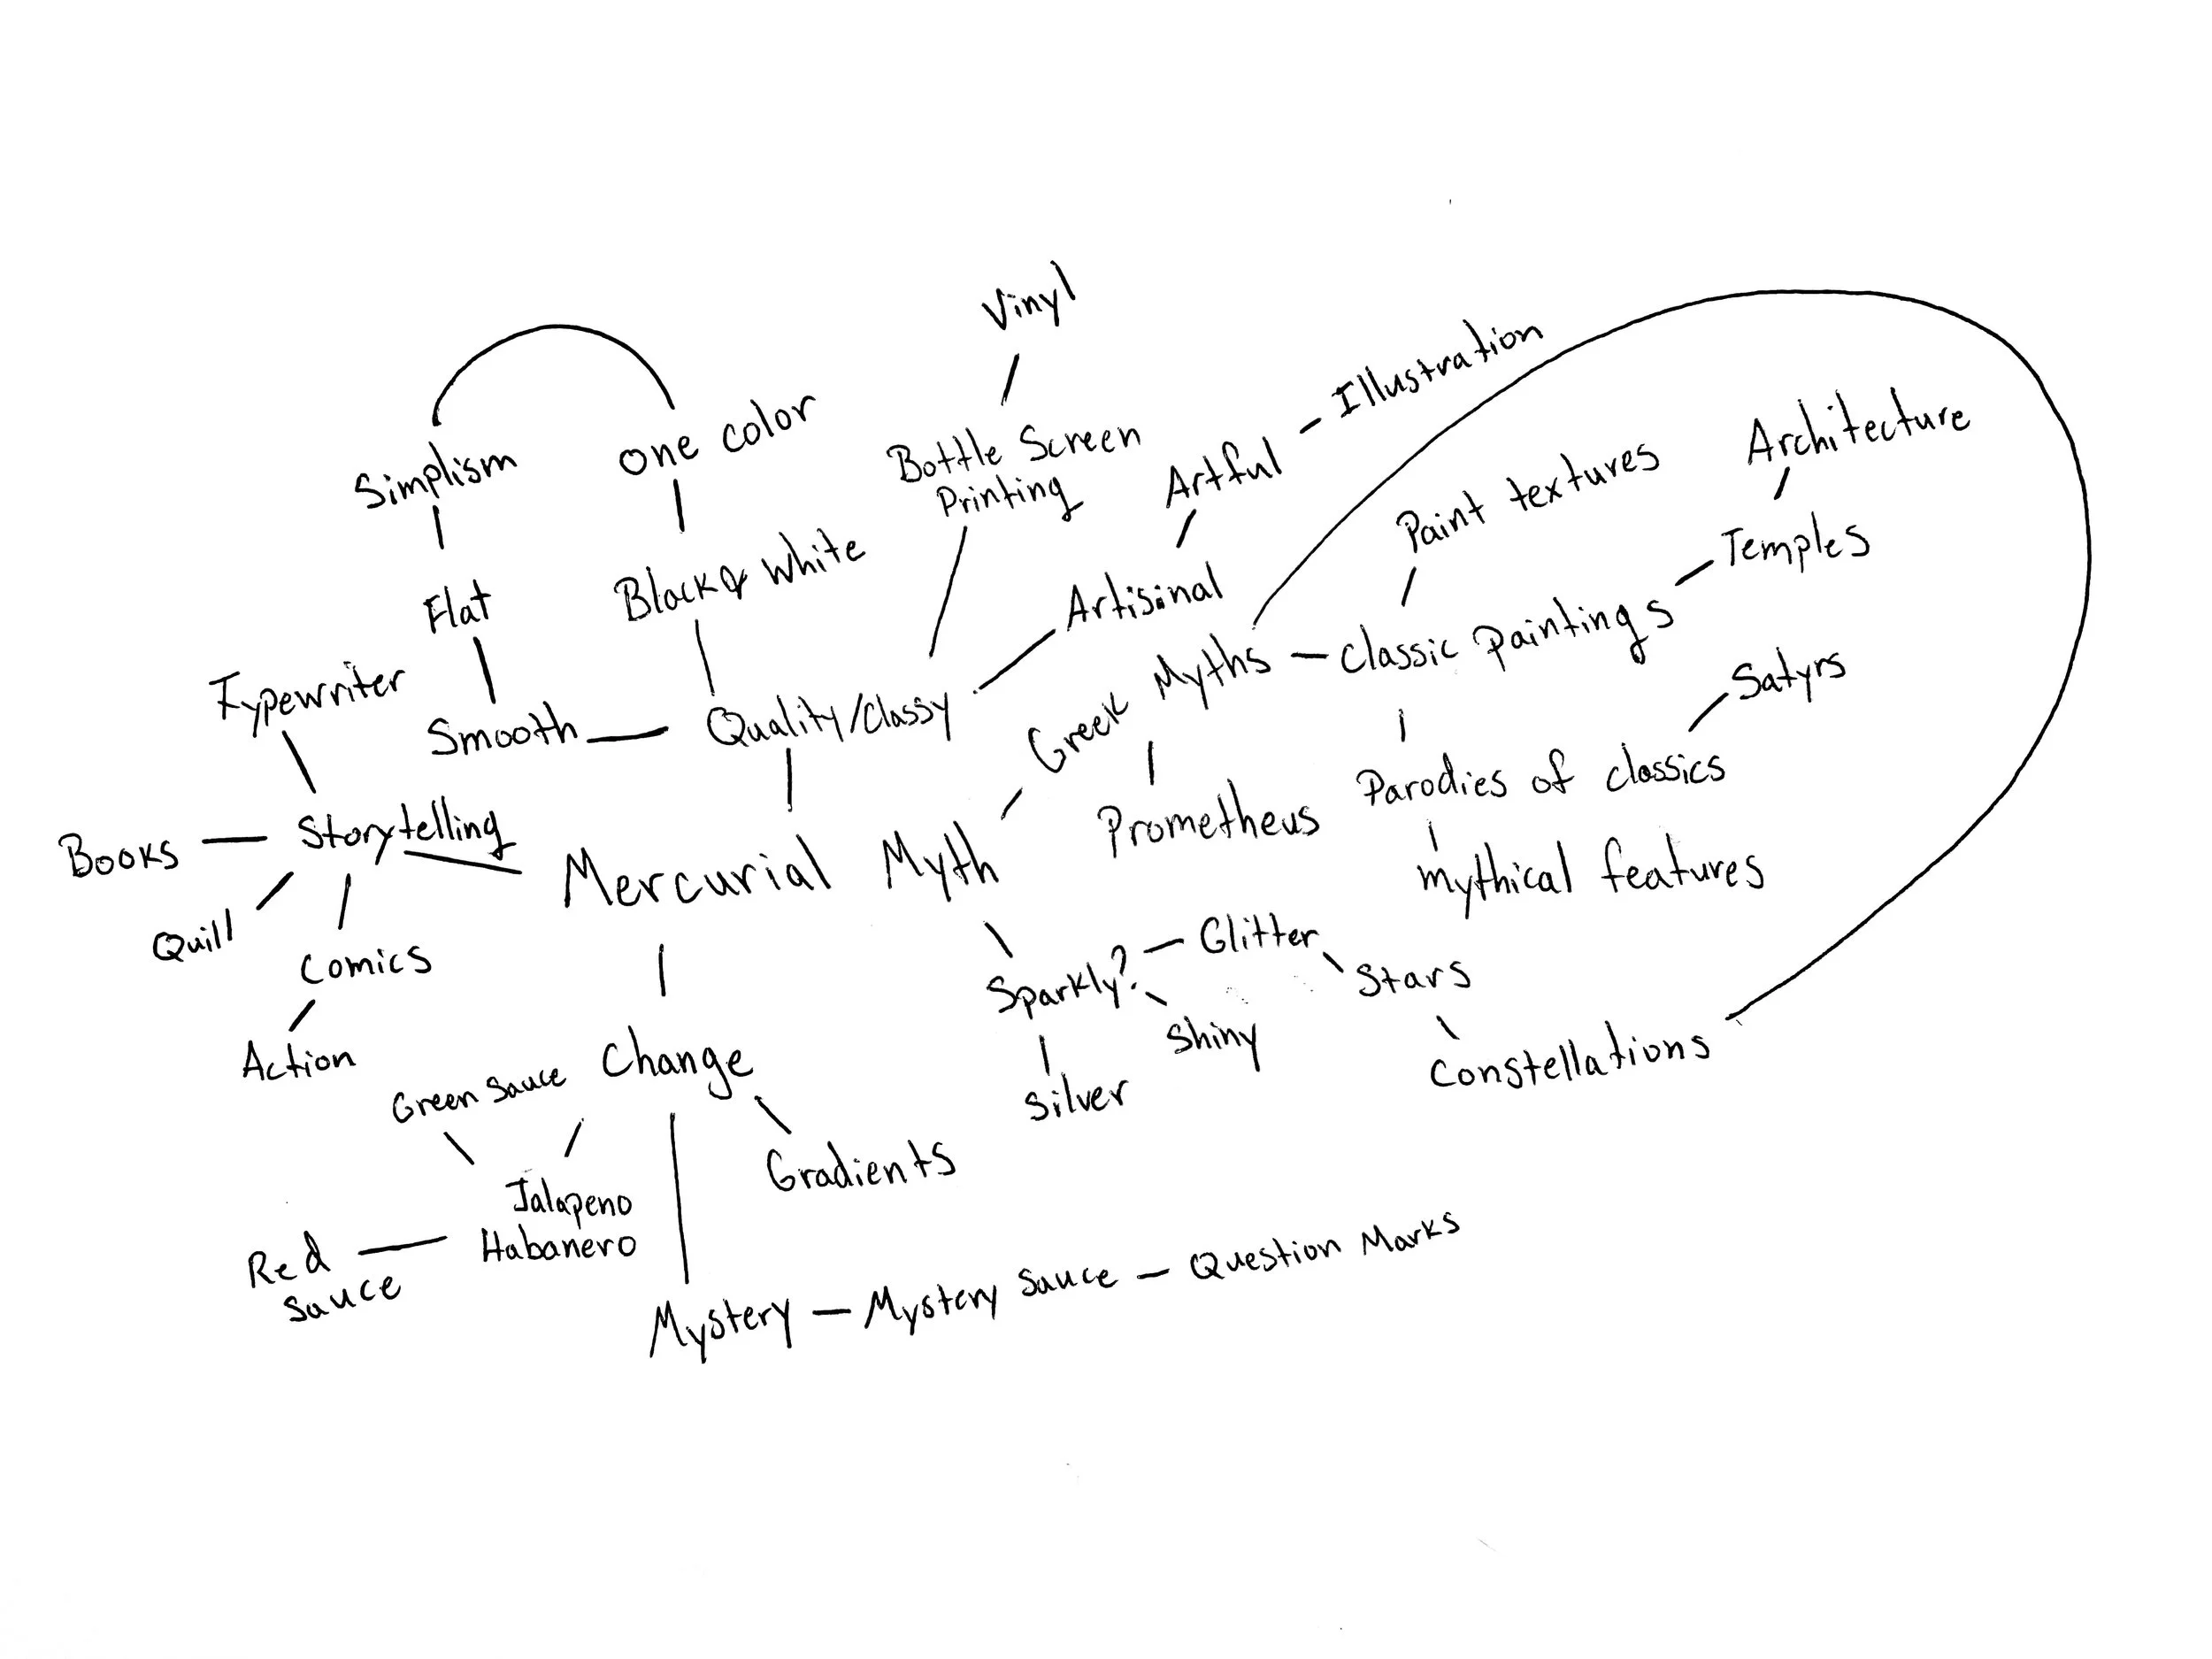 Vinyl
Illustration
one color
Simplism
Bottle Screen
Printing
Artful
Paint textures
Architecture
Temples
Flat
Black & White
Artisinal
Greek Myths
Classic Paintings
Satyrs
Typewriter
Smooth
Quality/Classy
Books
Storytelling
Mercurial Myth
Prometheus
Parodies of classics
mythical features
Quill
Comics
Sparkly?
Glitter
Stars
Shiny
Action
Green Sauce
Change
Silver
Constellations
Jalapeno
Habanero
Gradients
Red
Sauce
Mystery
Mystery Sauce
Question Marks